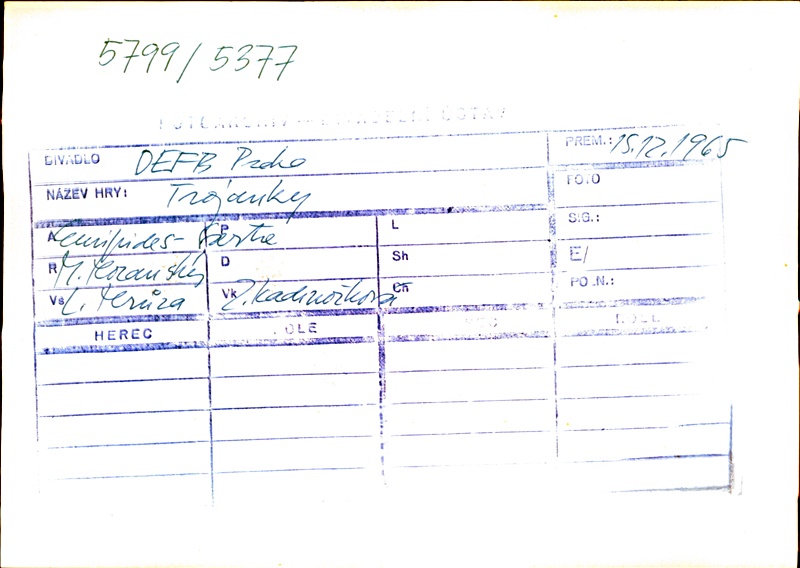 5799/5377
FOTOARCHIV - DIVADELNÍ ÚSTAV
DIVADLO DEFB Praha PREM.: 15.12.1965
NÁZEV HRY: Trojanky FOTO
A Euripides - Sartre P L SIG.:
R M. D Sh E/
Vs L. Hrůza Vk Z. Kadrnožková Ch PO .N.:
HEREC ROLE HEREC ROLE